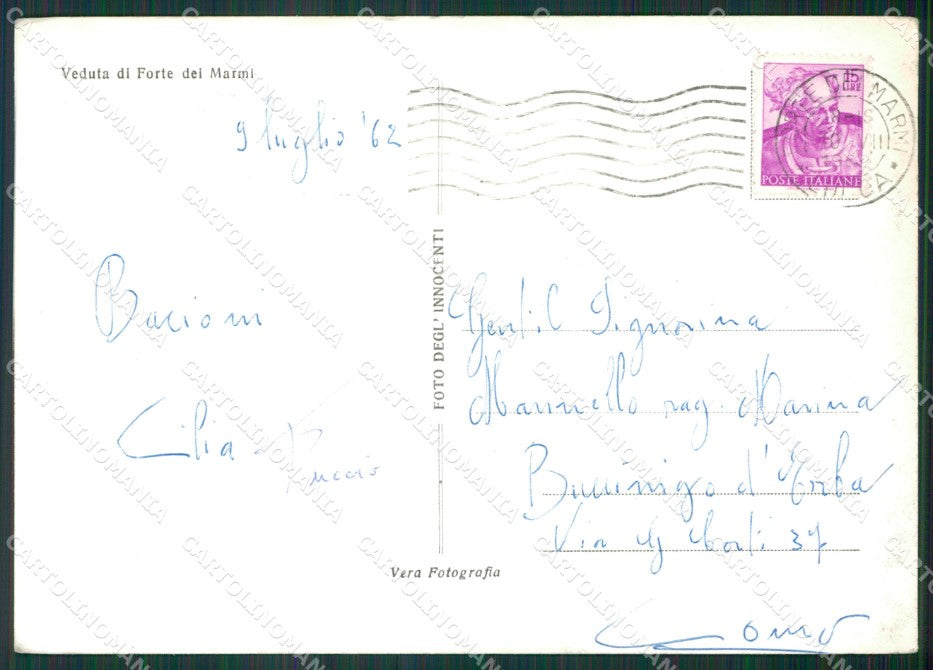 Veduta di Forte dei Marmi
9 luglio '62
Bacioni
Cilia
Puccio
FOTO DEGL' INNOCENTI
Vera Fotografia
15
LIRE
POSTE ITALIANE
Gentil Signorina
Marinello rag. Marina
Buccinigo d'Erba
Via G Corti 37
Como
CARTOLINOMANIA